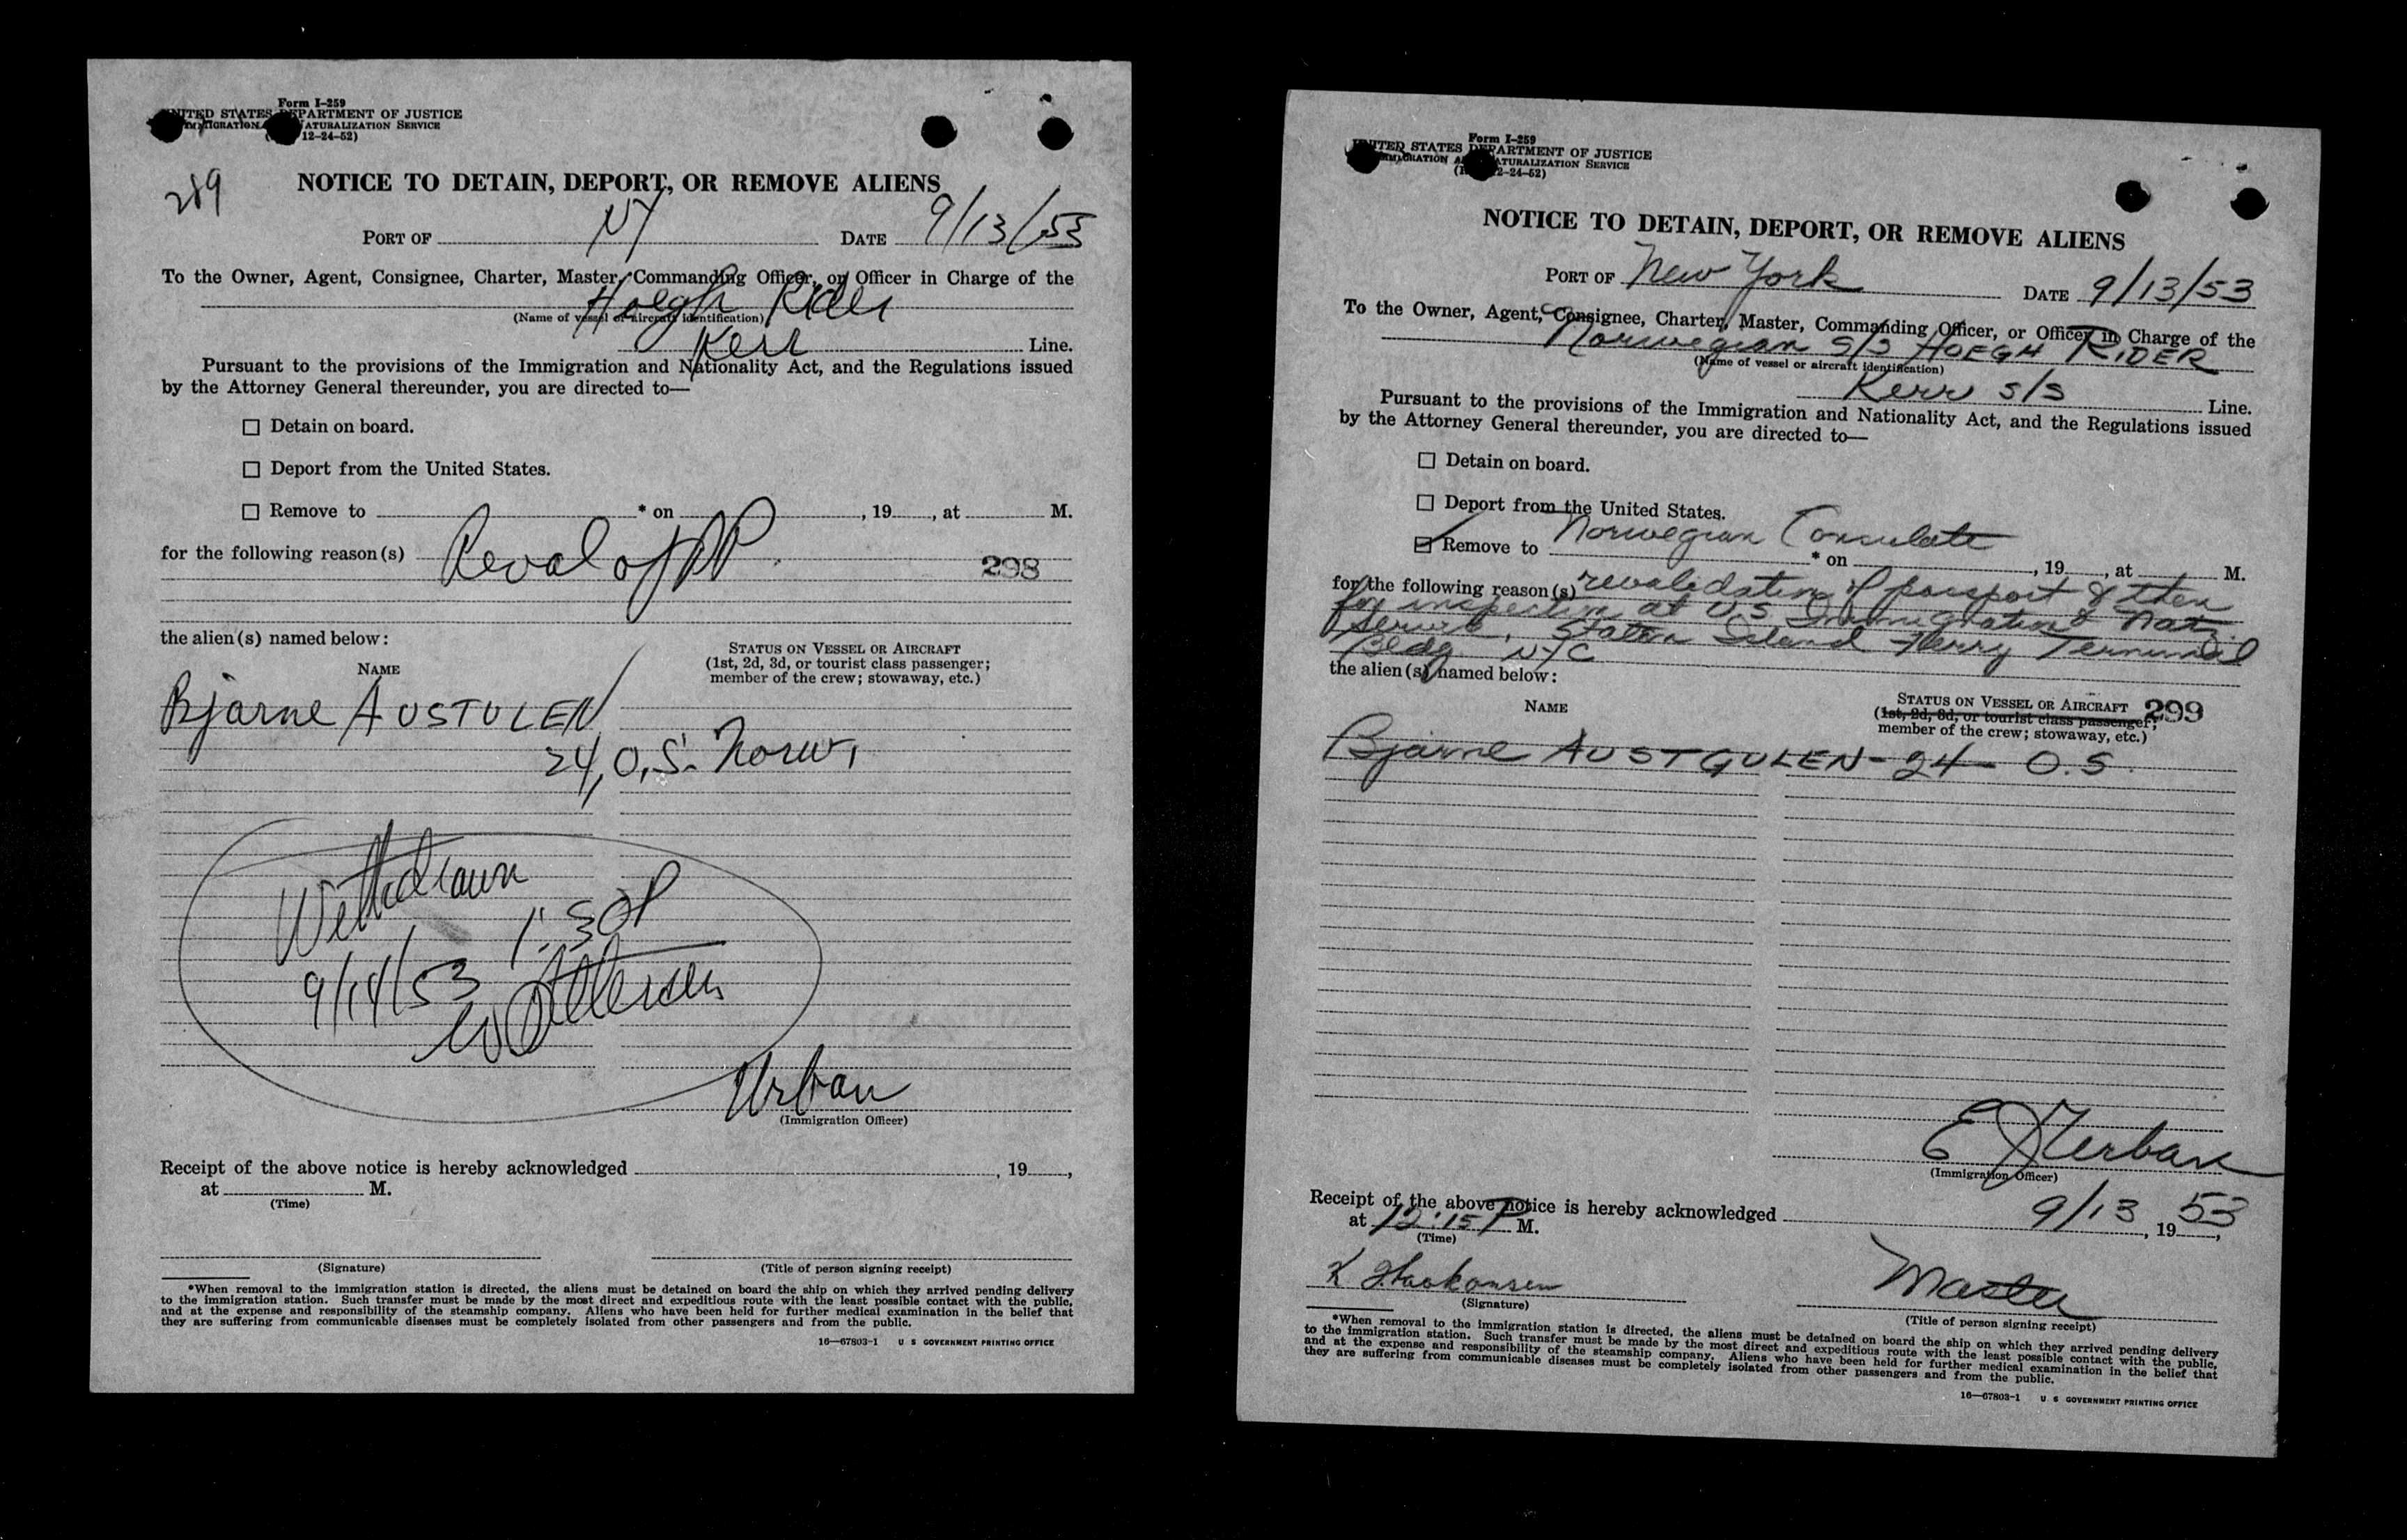 Form I-259
UNITED STATES DEPARTMENT OF JUSTICE
IMMIGRATION NATURALIZATION SERVICE
12-24-52)
289
NOTICE TO DETAIN, DEPORT, OR REMOVE ALIENS
PORT OF NY DATE 9/13/53
To the Owner, Agent, Consignee, Charter, Master, Commanding Officer, or Officer in Charge of the
Hoegh Rider
(Name of vessel or aircraft identification)
Kerr Line.
Pursuant to the provisions of the Immigration and Nationality Act, and the Regulations issued
by the Attorney General thereunder, you are directed to—
☐ Detain on board.
☐ Deport from the United States.
☐ Remove to * on , 19 , at M.
for the following reason(s) Reval of PP
298
the alien(s) named below:
NAME
STATUS ON VESSEL OR AIRCRAFT
(1st, 2d, 3d, or tourist class passenger;
member of the crew; stowaway, etc.)
Bjarne AUSTULEN
24, O.S. Norw.
Withdrawn
1:30P
9/14/53
Urban
(Immigration Officer)
Receipt of the above notice is hereby acknowledged , 19 ,
at M.
(Time)
(Signature) (Title of person signing receipt)
*When removal to the immigration station is directed, the aliens must be detained on board the ship on which they arrived pending delivery
to the immigration station. Such transfer must be made by the most direct and expeditious route with the least possible contact with the public,
and at the expense and responsibility of the steamship company. Aliens who have been held for further medical examination in the belief that
they are suffering from communicable diseases must be completely isolated from other passengers and from the public.
16—67803-1 U S GOVERNMENT PRINTING OFFICE
Form I-259
UNITED STATES DEPARTMENT OF JUSTICE
IMMIGRATION NATURALIZATION SERVICE
12-24-52)
NOTICE TO DETAIN, DEPORT, OR REMOVE ALIENS
PORT OF New York DATE 9/13/53
To the Owner, Agent, Consignee, Charter, Master, Commanding Officer, or Officer in Charge of the
Norwegian S/S HOEGH RIDER
(Name of vessel or aircraft identification)
Kerr S/S Line.
Pursuant to the provisions of the Immigration and Nationality Act, and the Regulations issued
by the Attorney General thereunder, you are directed to—
☐ Detain on board.
☐ Deport from the United States.
☑ Remove to Norwegian Consulate * on , 19 , at M.
for the following reason(s) revalidation of passport & then
for inspection at US Immigration & Natz.
Service, Staten Island Ferry Terminal
Bldg NYC
the alien(s) named below:
NAME
STATUS ON VESSEL OR AIRCRAFT 299
(1st, 2d, 3d, or tourist class passenger;
member of the crew; stowaway, etc.)
Bjarne AUSTGULEN - 24 - O.S.
E Urban
(Immigration Officer)
Receipt of the above notice is hereby acknowledged 9/13, 19 53,
at 12:15 P M.
(Time)
K Haakonsen Master
(Signature) (Title of person signing receipt)
*When removal to the immigration station is directed, the aliens must be detained on board the ship on which they arrived pending delivery
to the immigration station. Such transfer must be made by the most direct and expeditious route with the least possible contact with the public,
and at the expense and responsibility of the steamship company. Aliens who have been held for further medical examination in the belief that
they are suffering from communicable diseases must be completely isolated from other passengers and from the public.
16—67803-1 U S GOVERNMENT PRINTING OFFICE